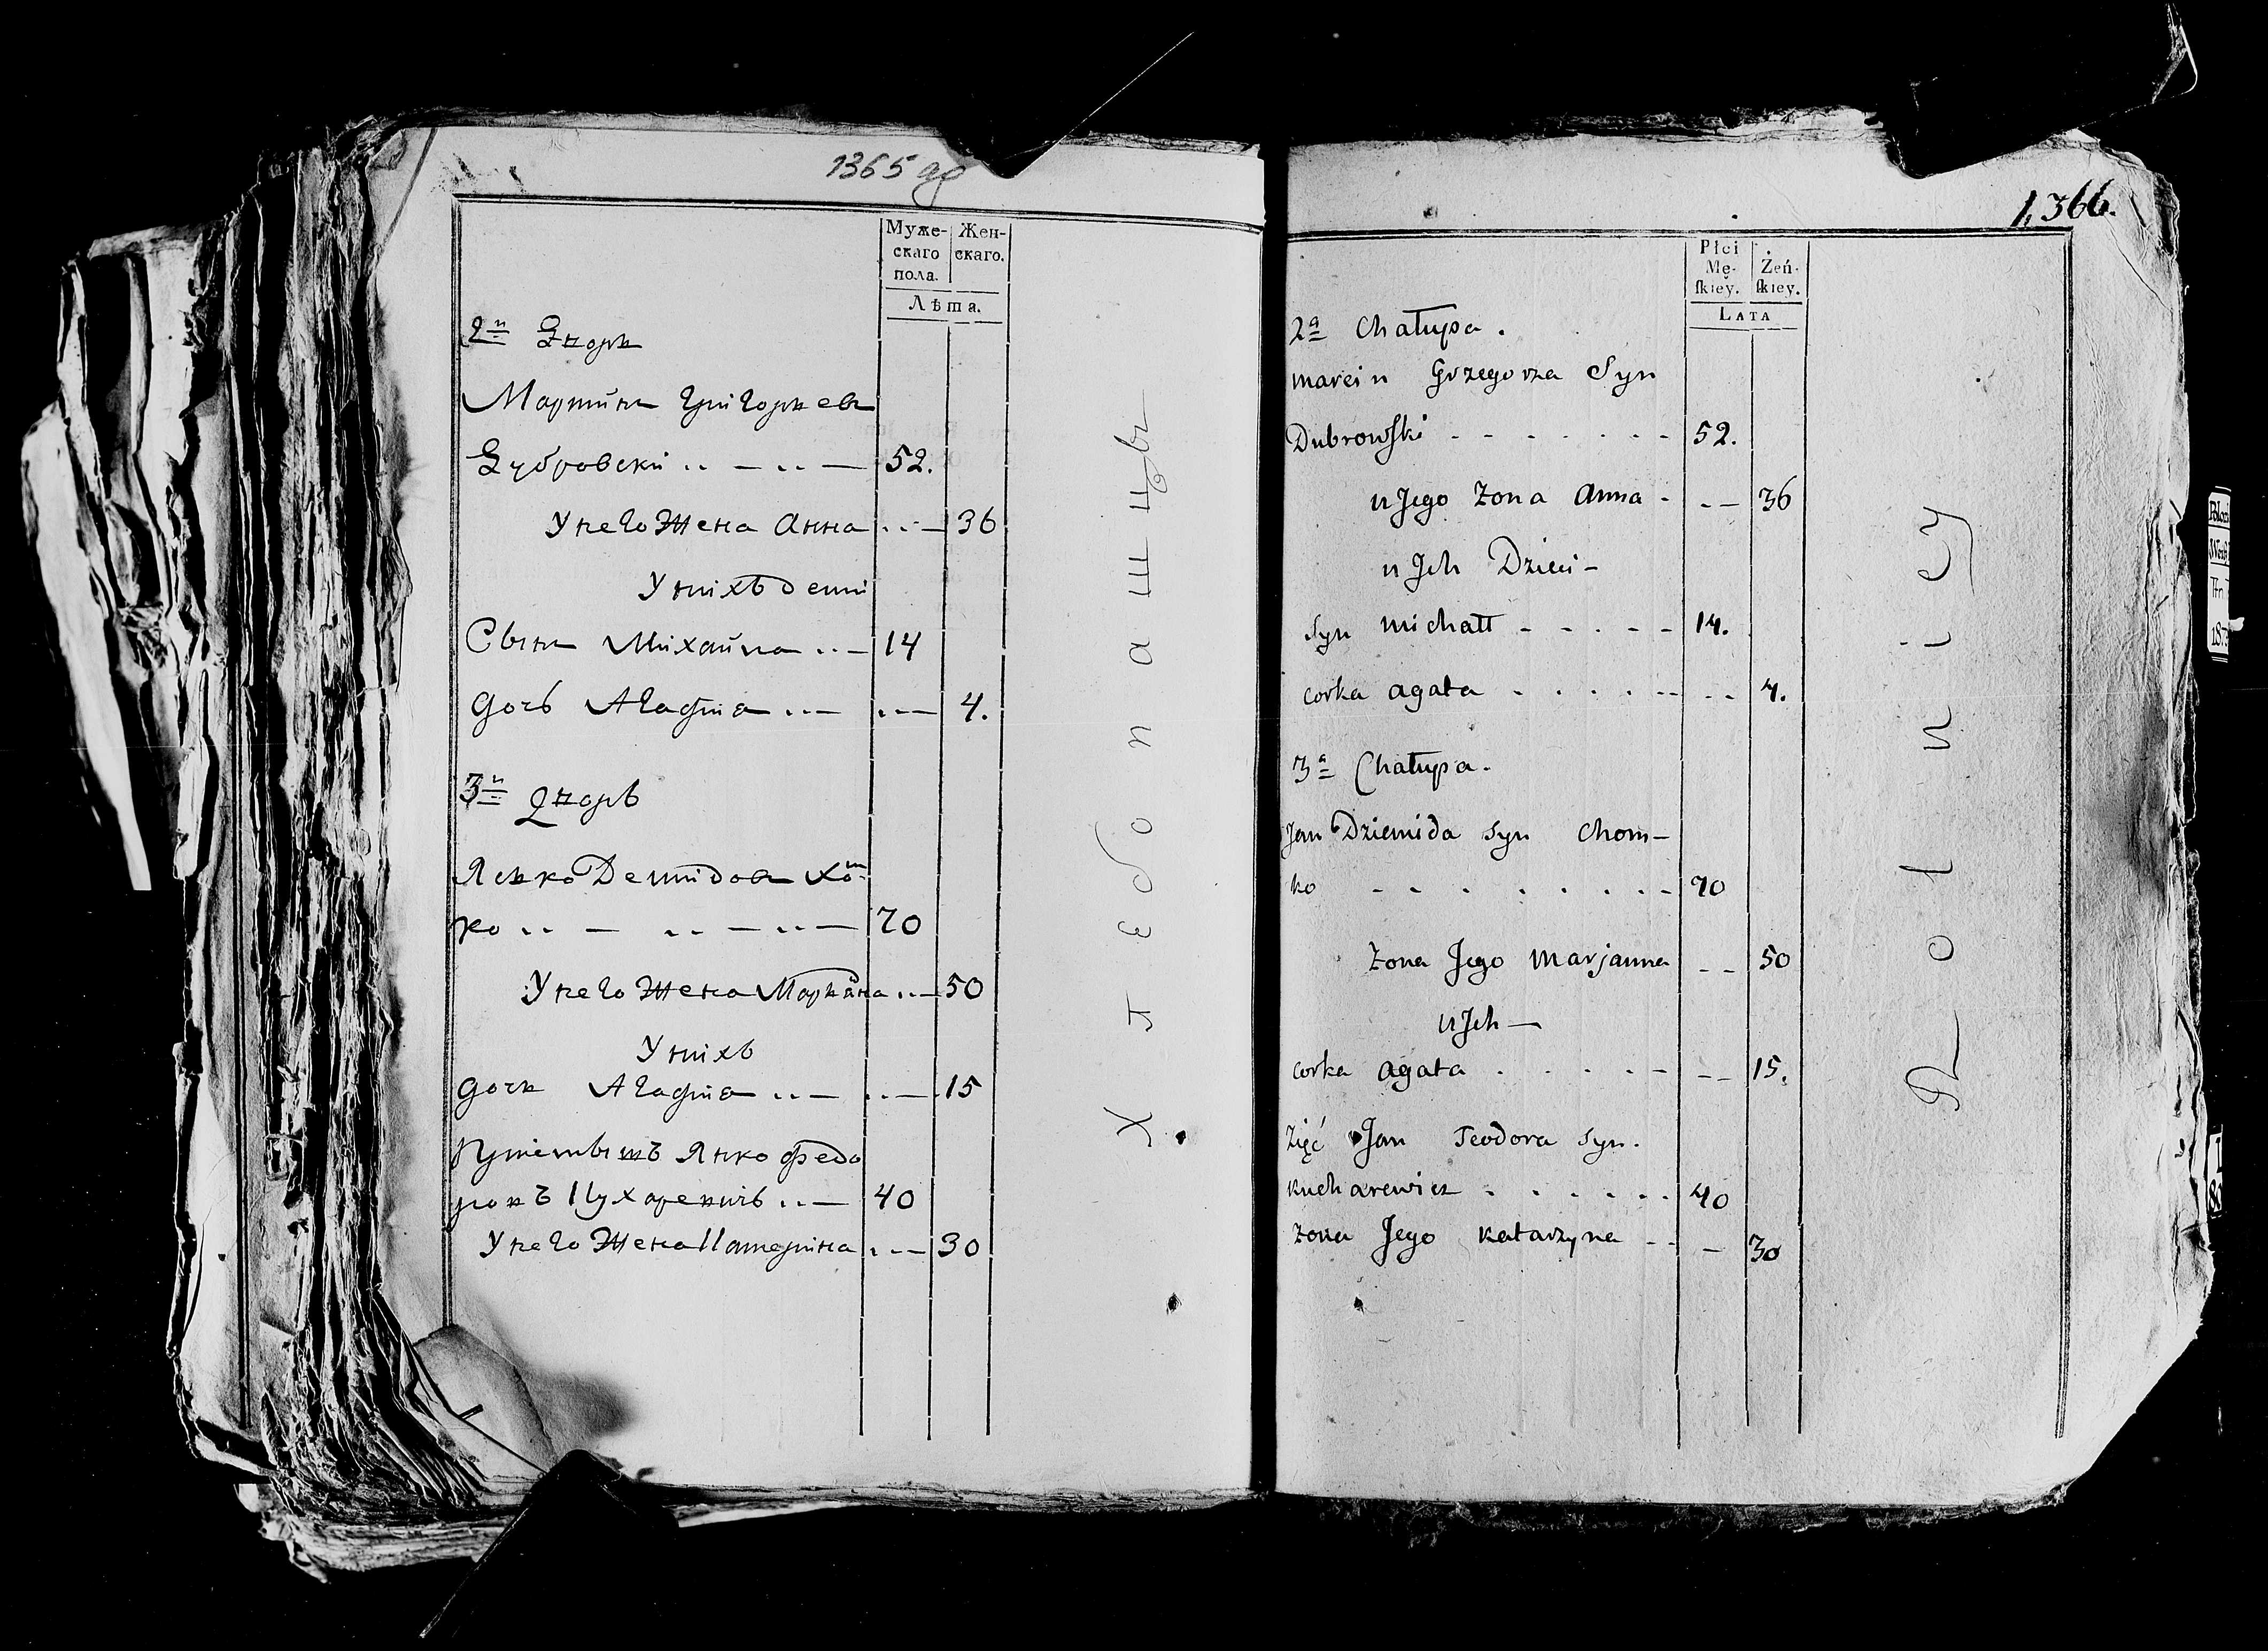 1365 об
Муже-
скаго
пола.
Жен-
скаго.
Лѣта.
2й Дворъ
Мартинъ Григорьевъ
Дубровски 52.
У него Жена Анна 36
У нихъ дети
Сынъ Михайла 14
дочь Агафия 4.
3й Дворъ
Янко Демидовъ Хом-
ко 70
У него Жена Марьяна 50
У нихъ
дочь Агафия 15
Янко Федо
ровъ Кухаревичъ 40
У него Жена Катерина 30
Хлебопашцы
1,366.
Płci
Mę-
ſkiey.
Żeń-
ſkiey.
LATA
2a Chałupa.
marcin Grzegorza Syn
Dubrowſki 52.
u Jego żona Anna 36
u Jch Dzieci
Syn michałł 14.
corka agata 4.
3a Chałupa.
Jan Dziemida Syn Chom-
ko 70
żona Jego marjanna 50
u Jch
corka agata 15.
zięć Jan Teodora Syn.
kucharewicz 40
żona Jego katarzyna 30
Rolnicy